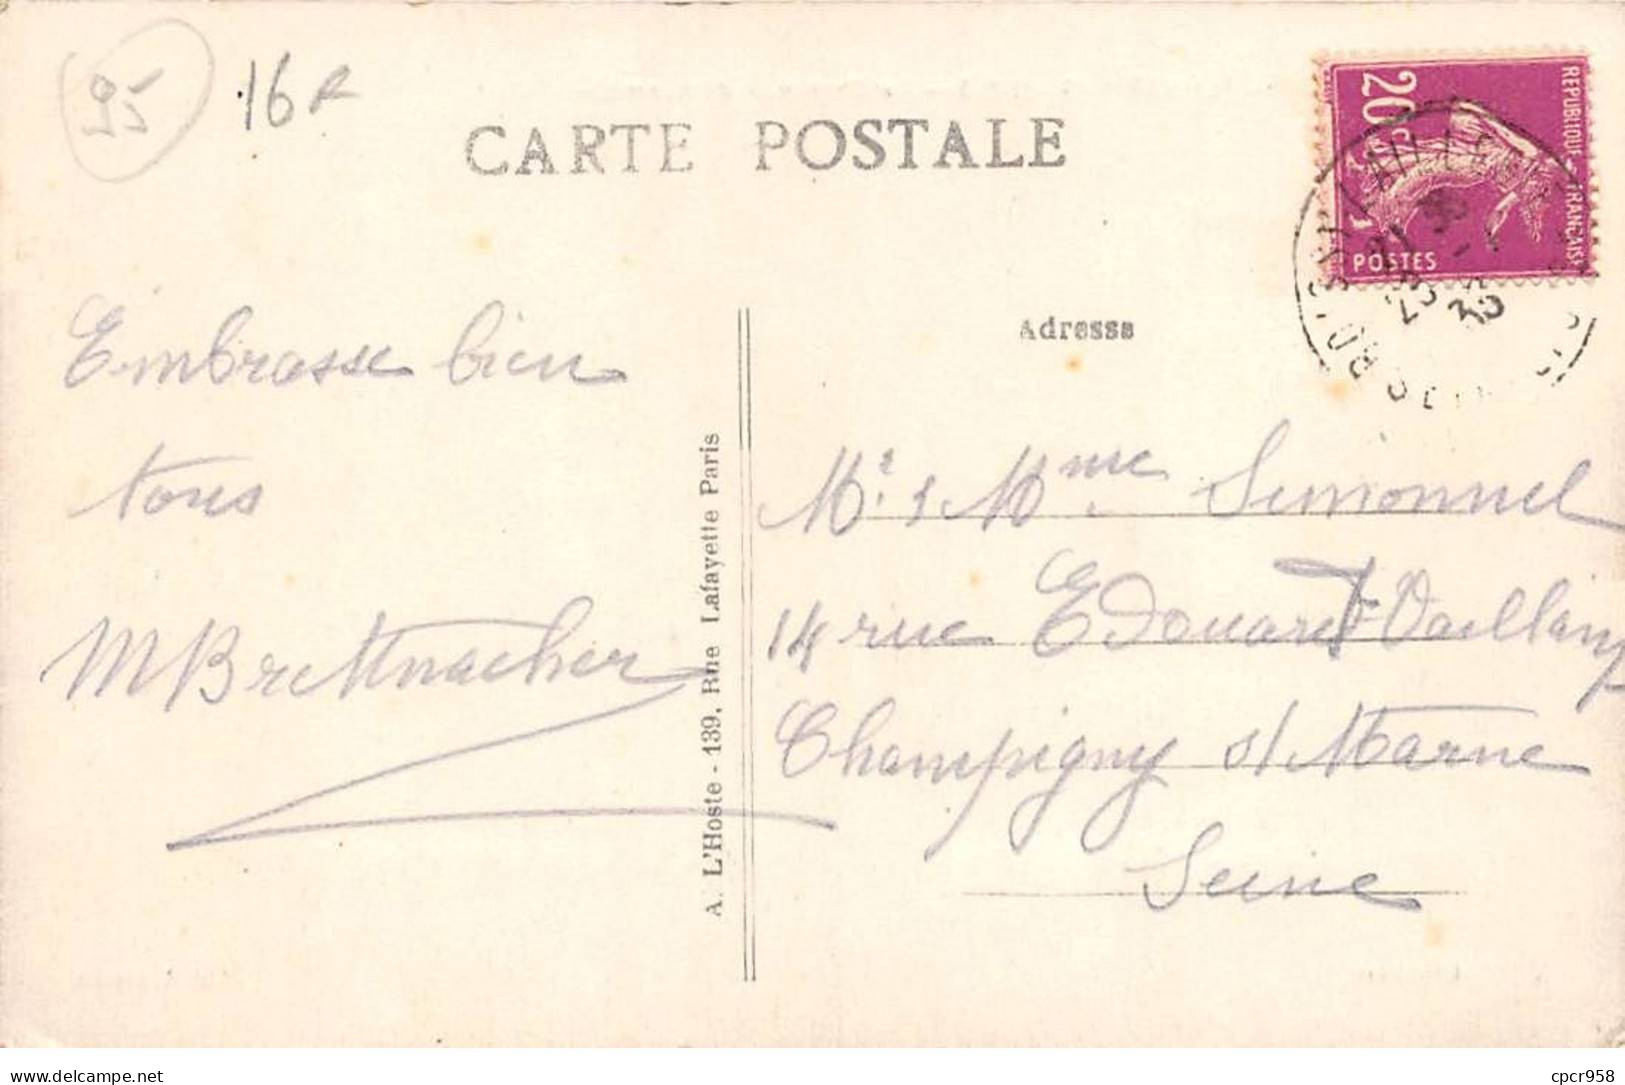 95
16 R
CARTE POSTALE
20c
REPUBLIQUE FRANCAISE
POSTES
21 30
23 - 7
35
Adresse
Embrasse bien
tous
MBrettnacher
A. L'Hoste - 139, Rue Lafayette Paris
Mr & Mme Simonnel
14 rue Edouard Vaillant
Champigny s/ Marne
Seine
cpcr958